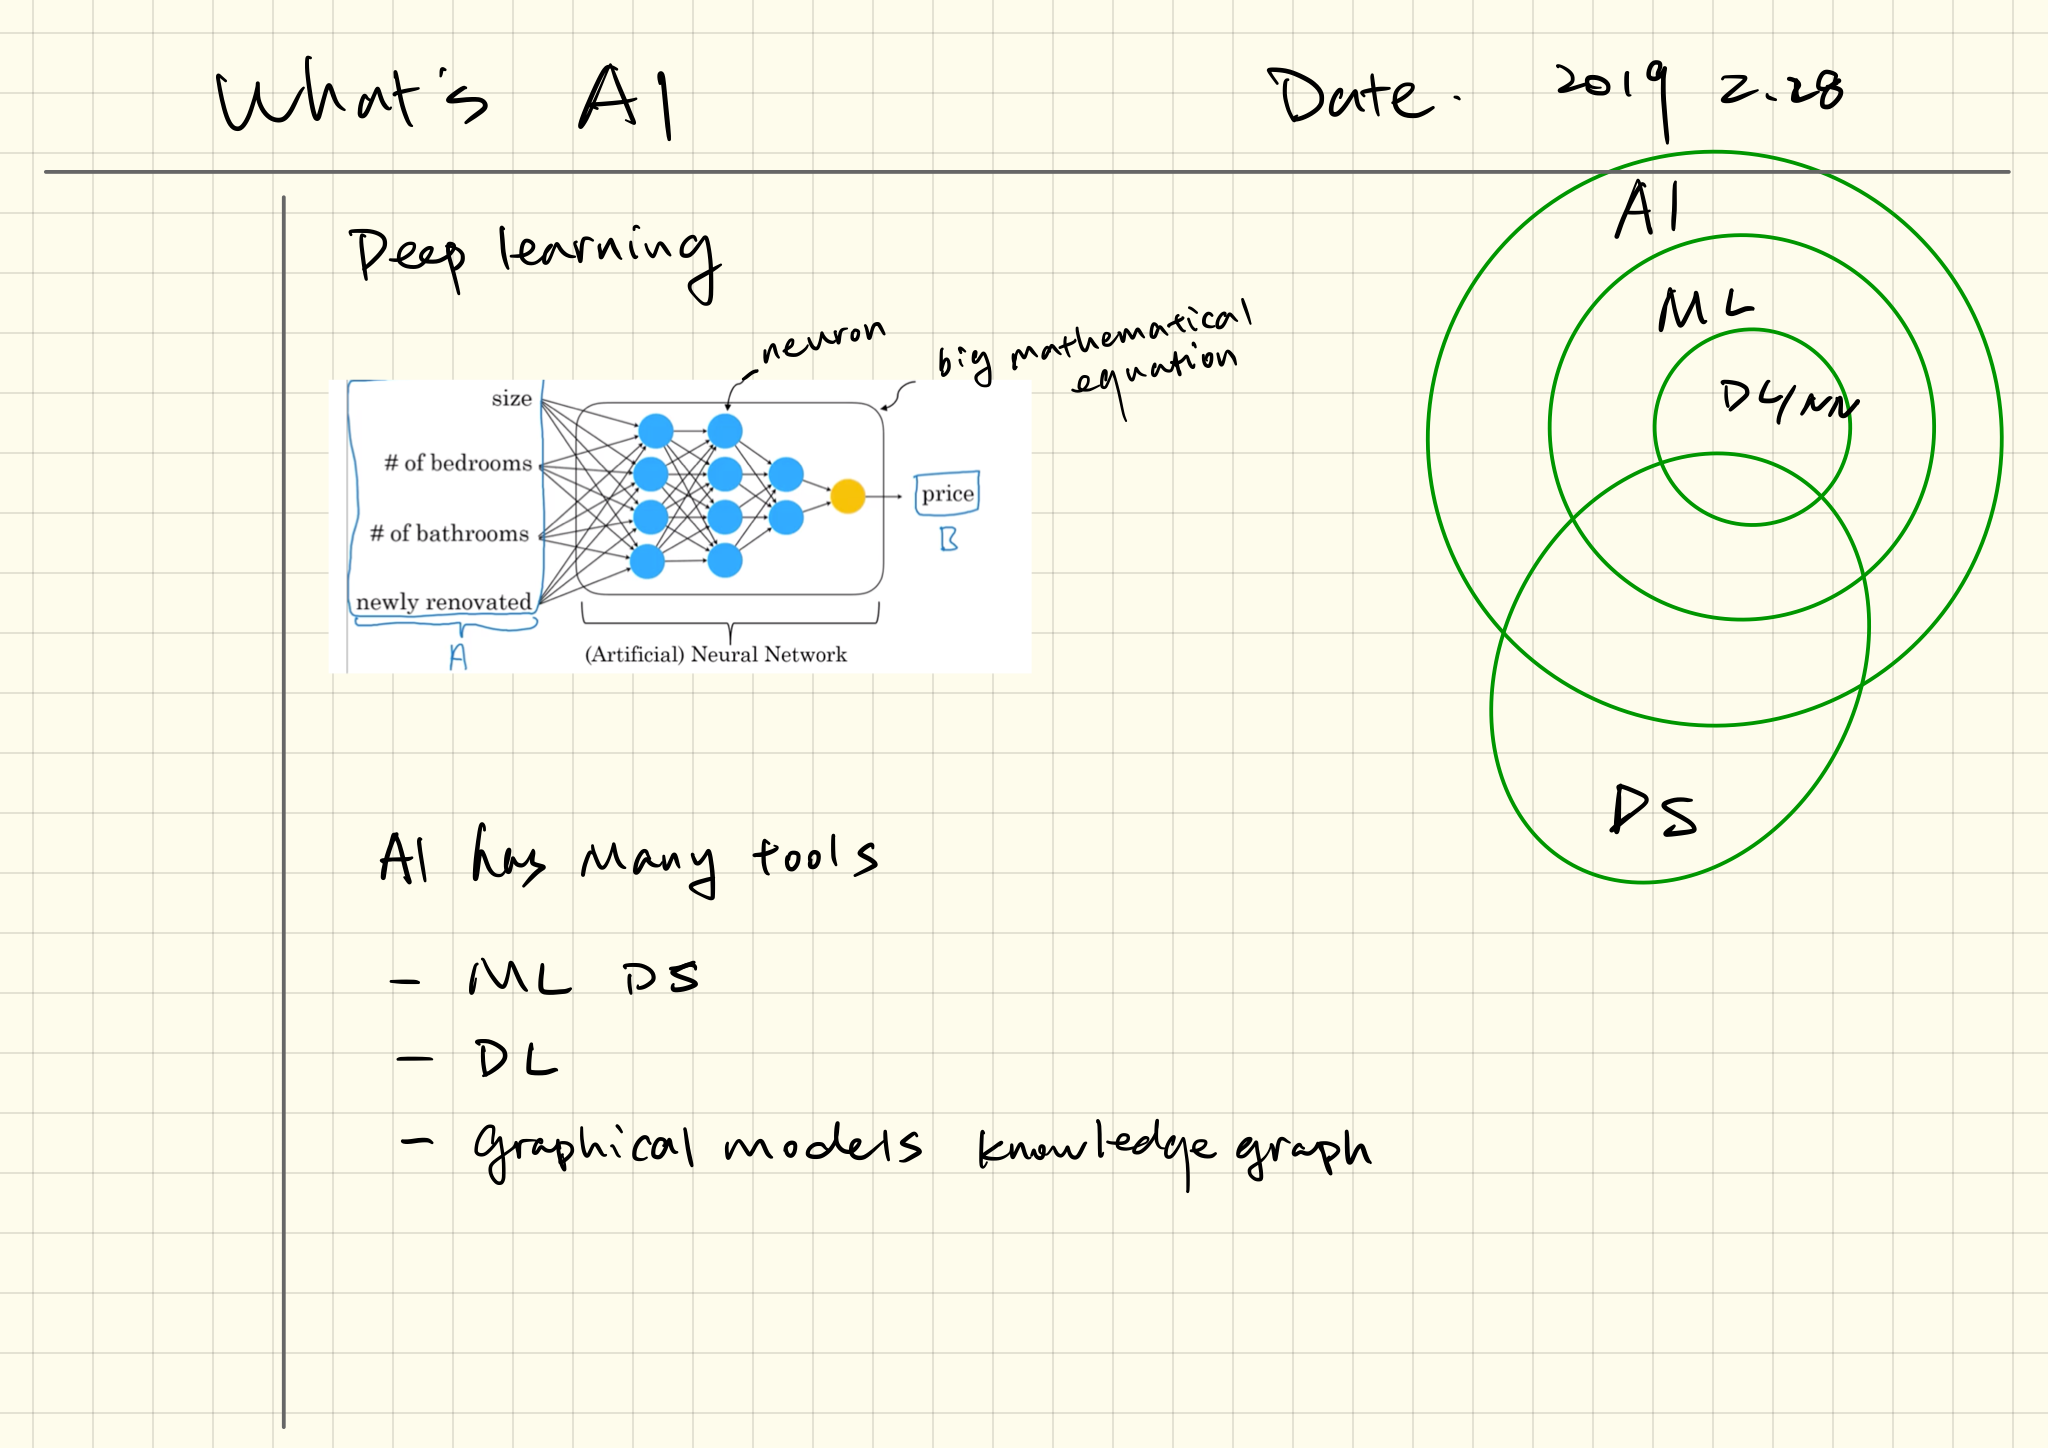 What's AI
Date. 2019 2.28
Deep learning
neuron
big mathematical
equation
size
# of bedrooms
# of bathrooms
newly renovated
A
price
B
(Artificial) Neural Network
AI
ML
DL/NN
DS
AI has many tools
- ML DS
- DL
- graphical models knowledge graph